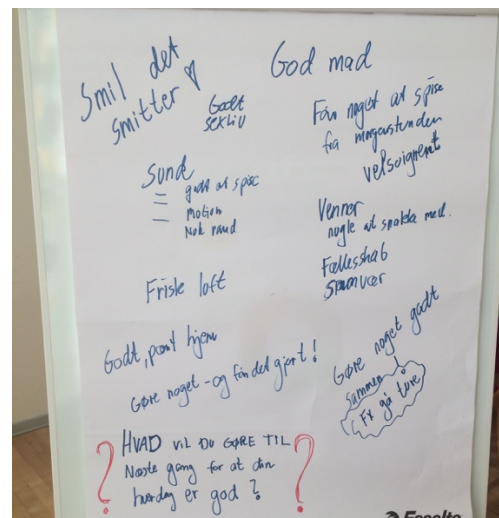 Smil det
smitter
God mad
Godt
sexliv
Få noget at spise
fra morgenstunden
velsoigneret
Sund
godt at spise
motion
Nok vand
Venner
nogle at snakke med.
Fællesskab
Samvær
Frisk loft
Godt, pænt hjem
Gøre noget - og få det gjort!
Gøre noget godt
sammen!
Fx gå ture
HVAD VIL DU GØRE TIL
Næste gang for at din
hverdag er god?
? ?